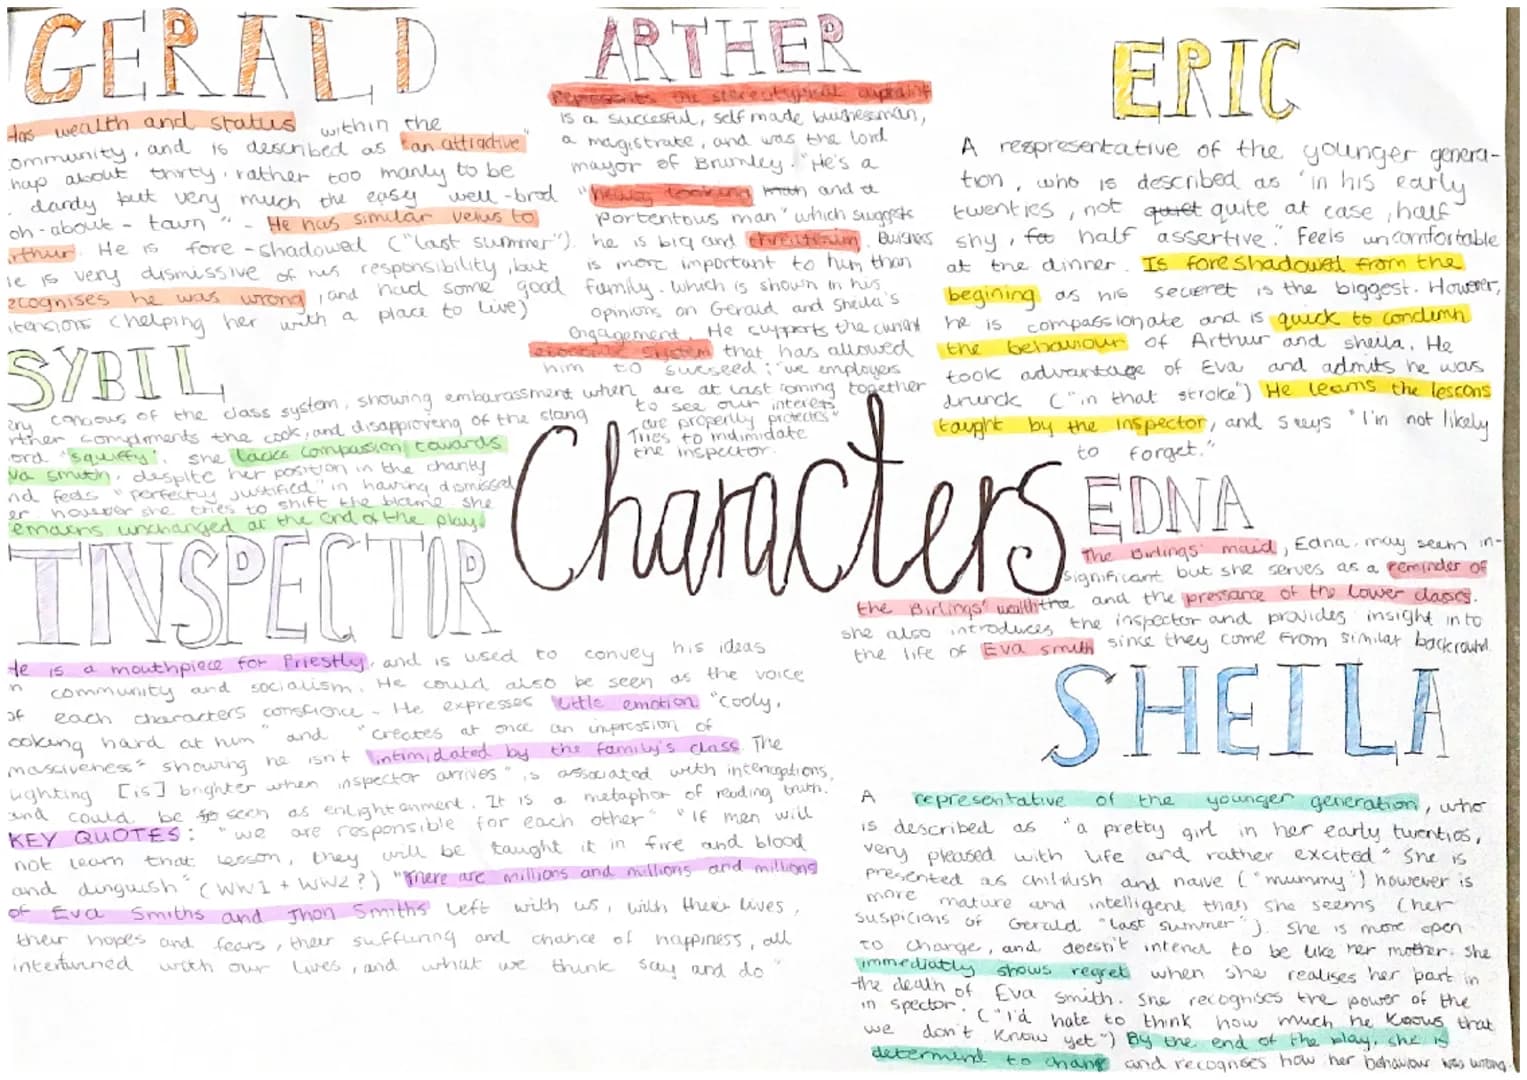 GERALD
Has wealth and status within the
ommunity, and is described as "an attractive"
hap about thirty, rather too manly to be
dandy but very much the easy well-bred
oh-about-town" - He has similar veiws to
rthur. He is fore-shadowed ("last summer").
e is very dismissive of his responsibility, but
ecognises he was wrong, and had some good
itensions (helping her with a place to live)
SYBIL
ery concous of the class system, showing embarassment when
rther compliments the cook, and disapproveng of the slang
ord "squiffy". she lacks compassion towards
va smith, despite her position in the charity
nd feels "perfectly justified" in having dismissed
er. however she tries to shift the blame. she
emains unchanged at the end of the play.
INSPECTOR
He is a mouthpiece for Priestly, and is used to convey his ideas
n community and socialism. He could also be seen as the voice
of each characters conscience - He expresses little emotion "cooly,
ooking hard at him" and "creates at once an impression of
massiveness" showing he isn't intimidated by the family's class. The
lighting [is] brighter when inspector arrives" is associated with interrogations,
and could be seen as enlightenment. It is a metaphor of reading truth.
KEY QUOTES: "we are responsible for each other" "If men will
not learn that lesson, they will be taught it in fire and blood
and dinguish" (WW1 + WW2?) "There are millions and millions and millions
of Eva Smiths and Jhon Smiths left with us, with their lives,
their hopes and fears, their suffuring and chance of happiness, all
intertwined with our lives, and what we think say and do"
ARTHER
represents the stereotypical
is a succesful, self made buisnessman,
a magistrate, and was the lord
mayor of Brumley. "He's a
"heavy looking man and a
portentous man" which suggests
he is big and threatening. Buisness
is more important to him than
family. which is shown in his
opinions on Gerald and Sheila's
engagement. He supports the current
system that has allowed
him to succseed; "we employers
are at last coming together
to see our interets
are properly protectes"
Tries to indimidate
the inspector.
Characters
ERIC
A respresentative of the younger genera-
tion, who is described as "in his early
twenties, not quiet quite at ease, half
shy, half assertive." Feels uncomfortable
at the dinner. Is foreshadowed from the
begining as his securet is the biggest. However,
he is compassionate and is quick to condemn
the behaviour of Arthur and sheila. He
took advantage of Eva and admits he was
drunck ("in that stroke") He learns the lessons
taught by the inspector, and says "I'm not likely
to forget."
EDNA
The Birlings' maid, Edna, may seem in-
significant but she serves as a reminder of
the Birlings' wealth and the pressance of the lower classes.
she also introduces the inspector and provides insight into
the life of Eva smith since they come from similar backround.
SHEILA
A representative of the younger generation, who
is described as "a pretty girl in her early twenties,
very pleased with life and rather excited" She is
presented as childish and naive ("mummy") however is
more mature and intelligent than she seems (her
suspicions of Gerald "last summer"). She is more open
to change, and doesn't intend to be like her mother. She
immediatly shows regret when she realises her part in
the death of Eva Smith. She recognises the power of the
in spector. ("I'd hate to think how much he knows that
we don't know yet") By the end of the play, she is
determind to change and recognises how her behaviour was wrong.